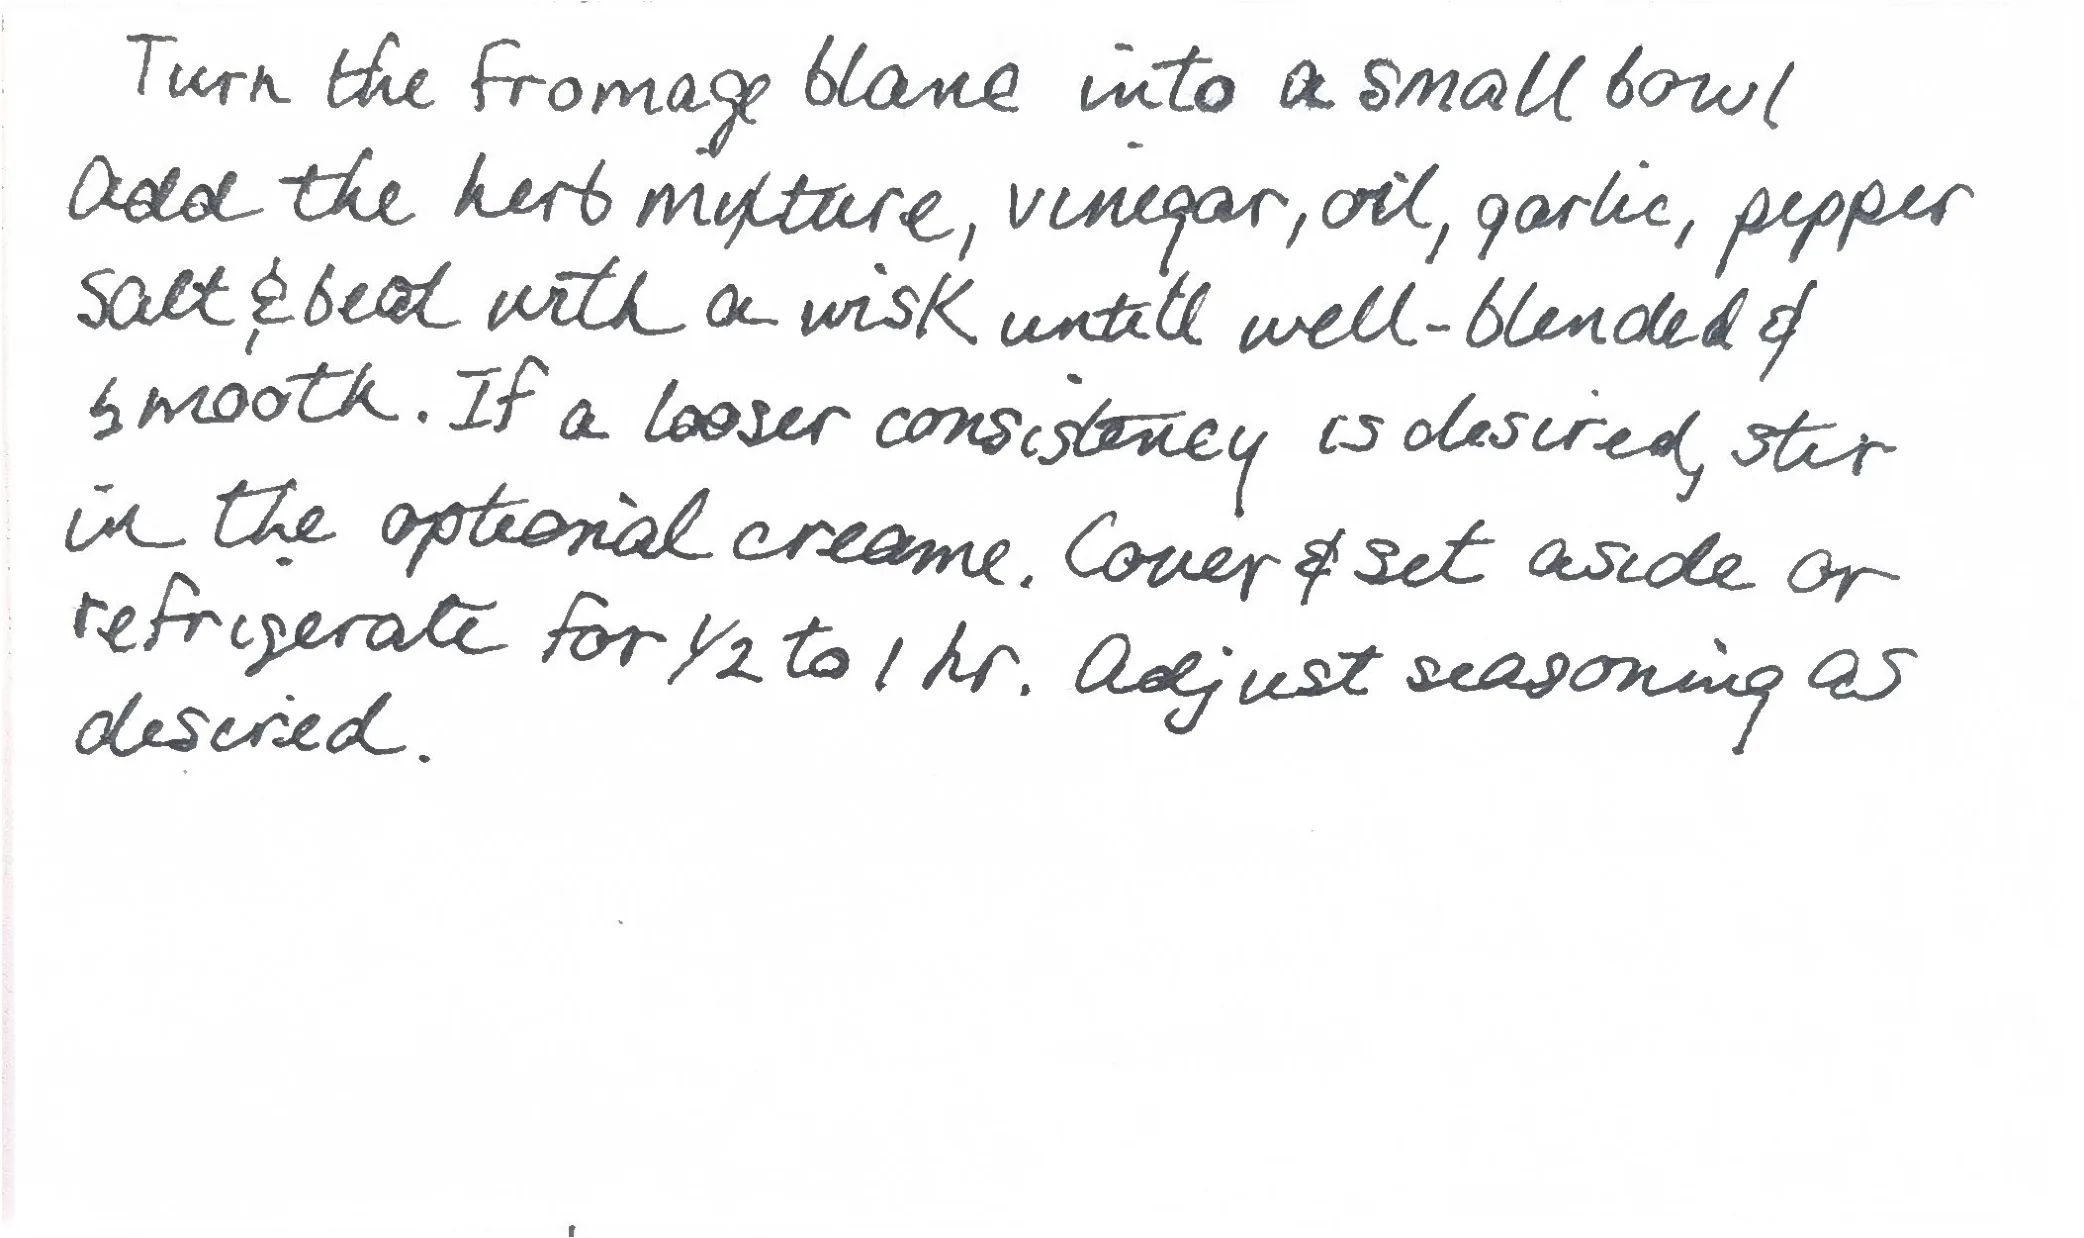 Turn the fromage blanc into a small bowl
Add the herb mixture, vinegar, oil, garlic, pepper
salt & beat with a wisk untill well-blended &
smooth. If a looser consistency is desired, stir
in the optional creame. Cover & set aside or
refrigerate for 1/2 to 1 hr. Adjust seasoning as
desired.